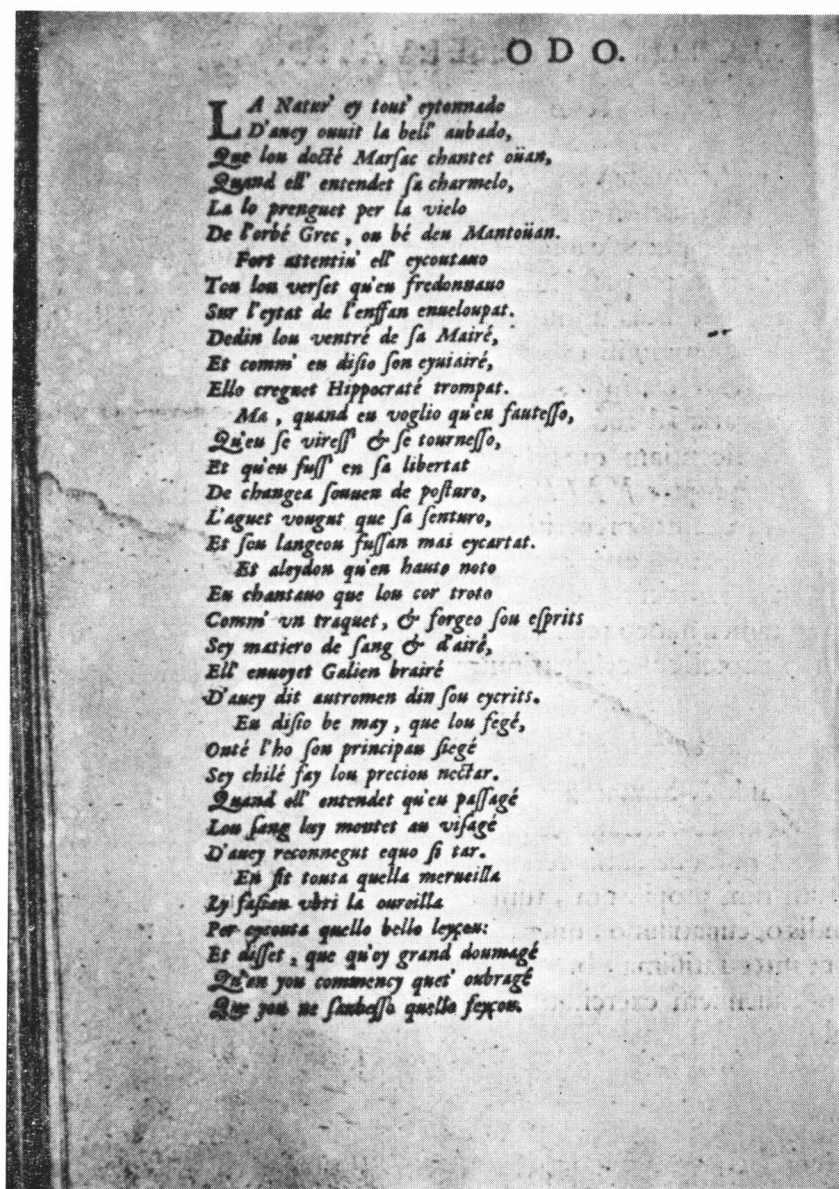 ODO.
LA Natur' ey tout' eytonnado
D'auey ouuit la bell' aubado,
Que lou docté Marsac chantet oüan,
Quand ell' entendet sa charmelo,
La lo prenguet per la vielo
De l'orbé Grec, ou bé deu Mantoüan.
Fort attentiu' ell' eycoutauo
Tou lou verset qu'eu fredonnauo
Sur l'eytat de l'enffan enueloupat.
Dedin lou ventré de sa Mairé,
Et comm' eu disio son eyuiairé,
Ello creguet Hippocraté trompat.
Ma, quand eu voglio qu'eu sautesso,
Qu'eu se viress' & se tournesso,
Et qu'eu fuss' en sa libertat
De changea souuen de posturo,
L'aguet vougut que sa senturo,
Et sou langeou fussan mai eycartat.
Et aleydon qu'en hauto noto
Eu chantauo que lou cor troto
Comm' vn traquet, & forgeo sou esprits
Sey matiero de sang & d'airé,
Ell' enuoyet Galien brairé
D'auey dit autromen din sou eycrits.
Eu disio be may, que lou fegé,
Onté l'ho son principau siegé
Sey chilé fay lou preciou nectar.
Quand ell' entendet qu'eu passagé
Lou sang luy montet au visagé
D'auey reconnegut equo si tar.
En fit touta quella merueilla
Ly fasian vbri la oureilla
Per eycouta quello bello leyçou:
Et disset, que qu'oy grand doumagé
Qu'an you commency quet' oubragé
Que you ne saubesso quello feyçou.